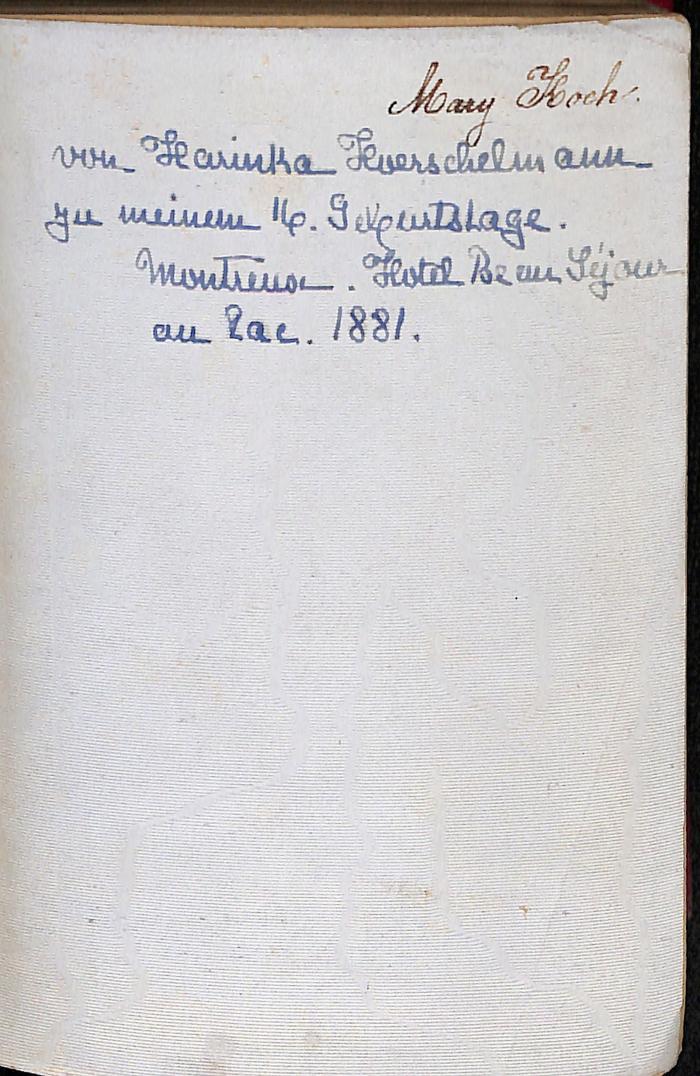 Mary Koch.
von Harinka Hoerschelmann
zu meinem 16. Geburtstage.
Montreux. Hotel Beau Séjour
au Lac. 1881.